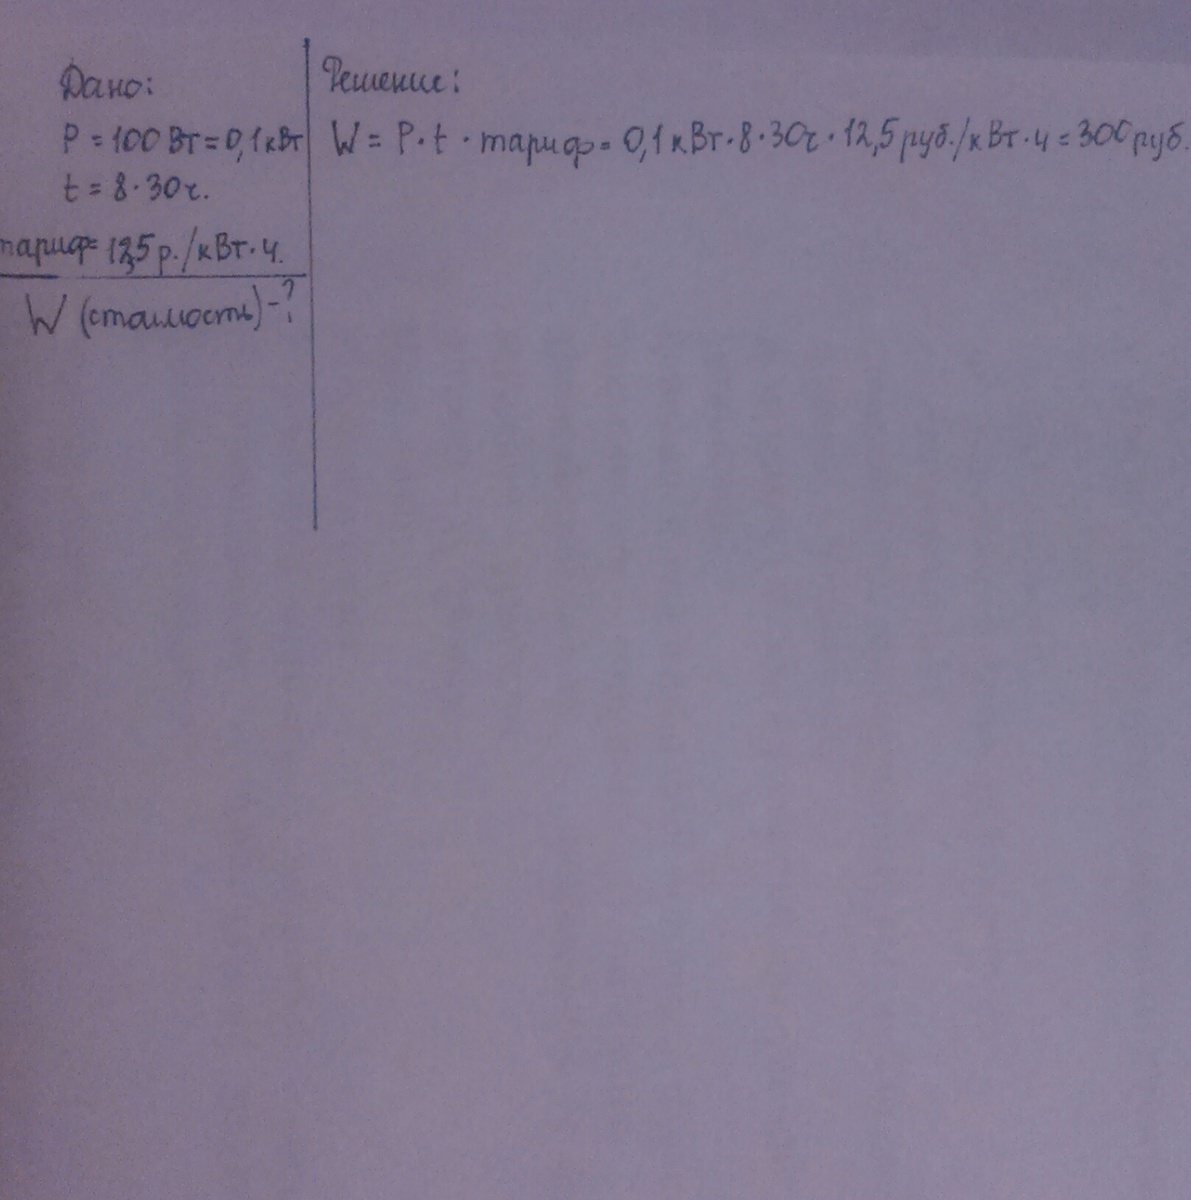 Дано:
P = 100 Вт = 0,1 кВт
t = 8 · 30 ч.
тариф = 12,5 р./кВт · ч.
W (стоимость) - ?
Решение:
W = P · t · тариф = 0,1 кВт · 8 · 30ч · 12,5 руб./кВт · ч = 300 руб.